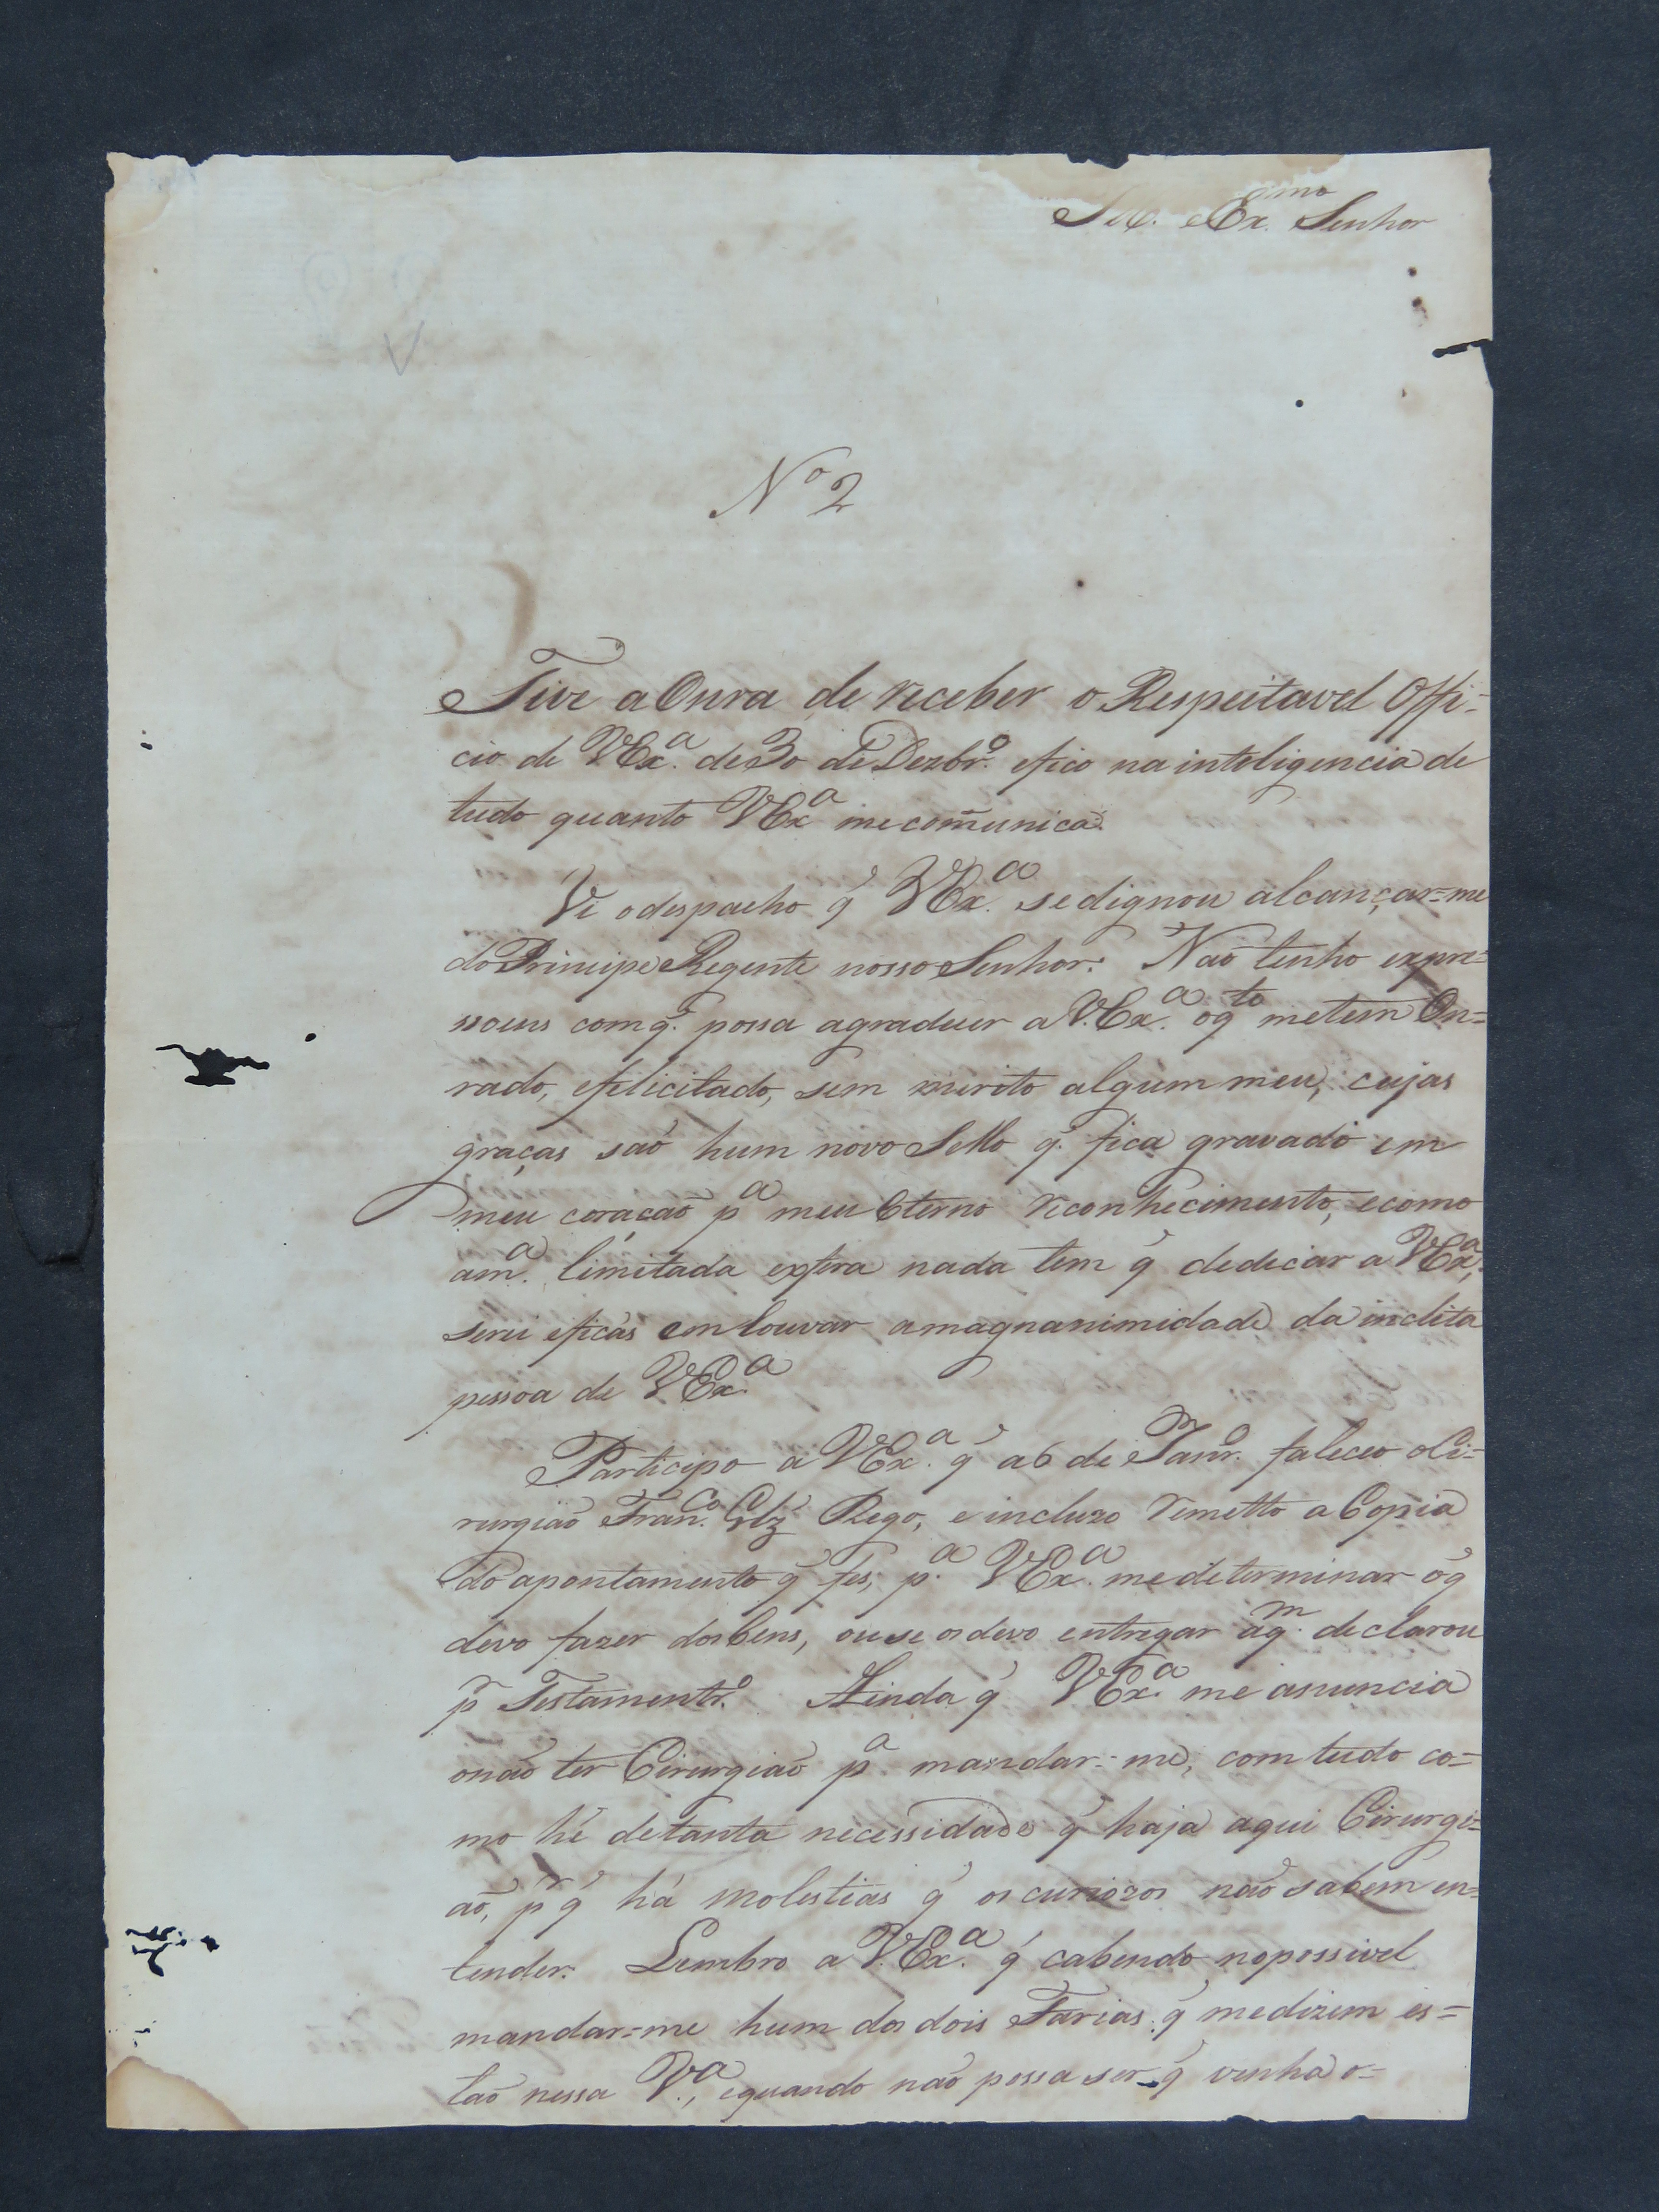 Ill. e Ex.mo Senhor
Nº 2
Tive a Onra de receber o Respeitavel Offi=
cio de VEx.ª de 30 de Dezbr.º efico na inteligencia de
tudo quanto VExª mecom̃unica.
Vi odespacho q̃ VEx.ª sedignou alcançar=me
do Principe Regente nosso Senhor. Naõ tenho expre=
ssoens comq̃. possa agradecer a V.Ex.ª oq.to metem On=
rado, efelicitado, sem merito algum meu, cujas
graças saõ hum novo Sello q̃. fica gravado em
meu coraçaõ pª meu Eterno reconhecimento, ecomo
am.ª limitada esfera nada tem q̃ dedicar a VExª,
serei eficás em louvar amagnanimidade da inclita
pessoa de VEx.ª
Participo a VEx.ª q̃ a6 de Janr.º faleceo oCi=
rurgiaõ Fran.co Glz̃ Rego, e incluzo remetto a Copia
do apontamento q̃ fes, p.ª VEx.ª medeterminar oq̃
devo fazer dosbens, ouse osdevo entregar aq.m declarou
p.r Testamentr.º Ainda q̃ VEx.ª me anuncia
onaõ ter Cirurgiaõ p.ª mandar=me, comtudo co=
mo hé detanta necessidade q̃ haja aqui Cirurgi=
aõ, p.r q̃ há molestias q̃ os curiozos naõ sabem en=
tender. Lembro a V.Ex.ª q̃ cabendo nopossivel
mandar=me hum dos dois Farias q̃ medizem es=
taõ nessa V.ª, equando naõ possa ser q̃ venha o=